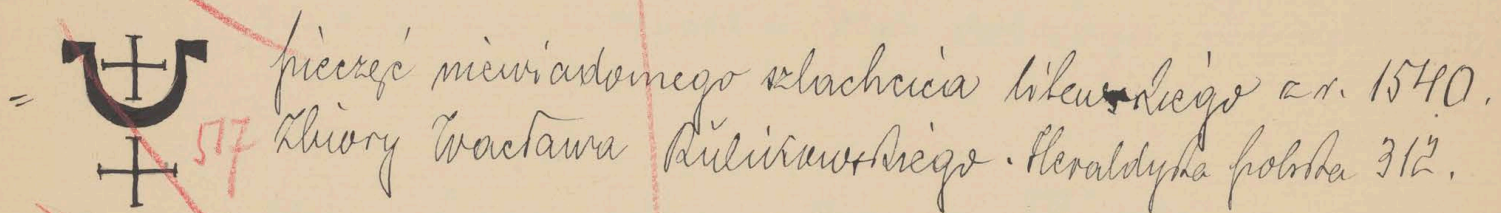 pieczęć niewiadomego szlachcica litewskiego z r. 1540.
517 Zbiory Wacława Rulikowskiego. Heraldyka polska 312.